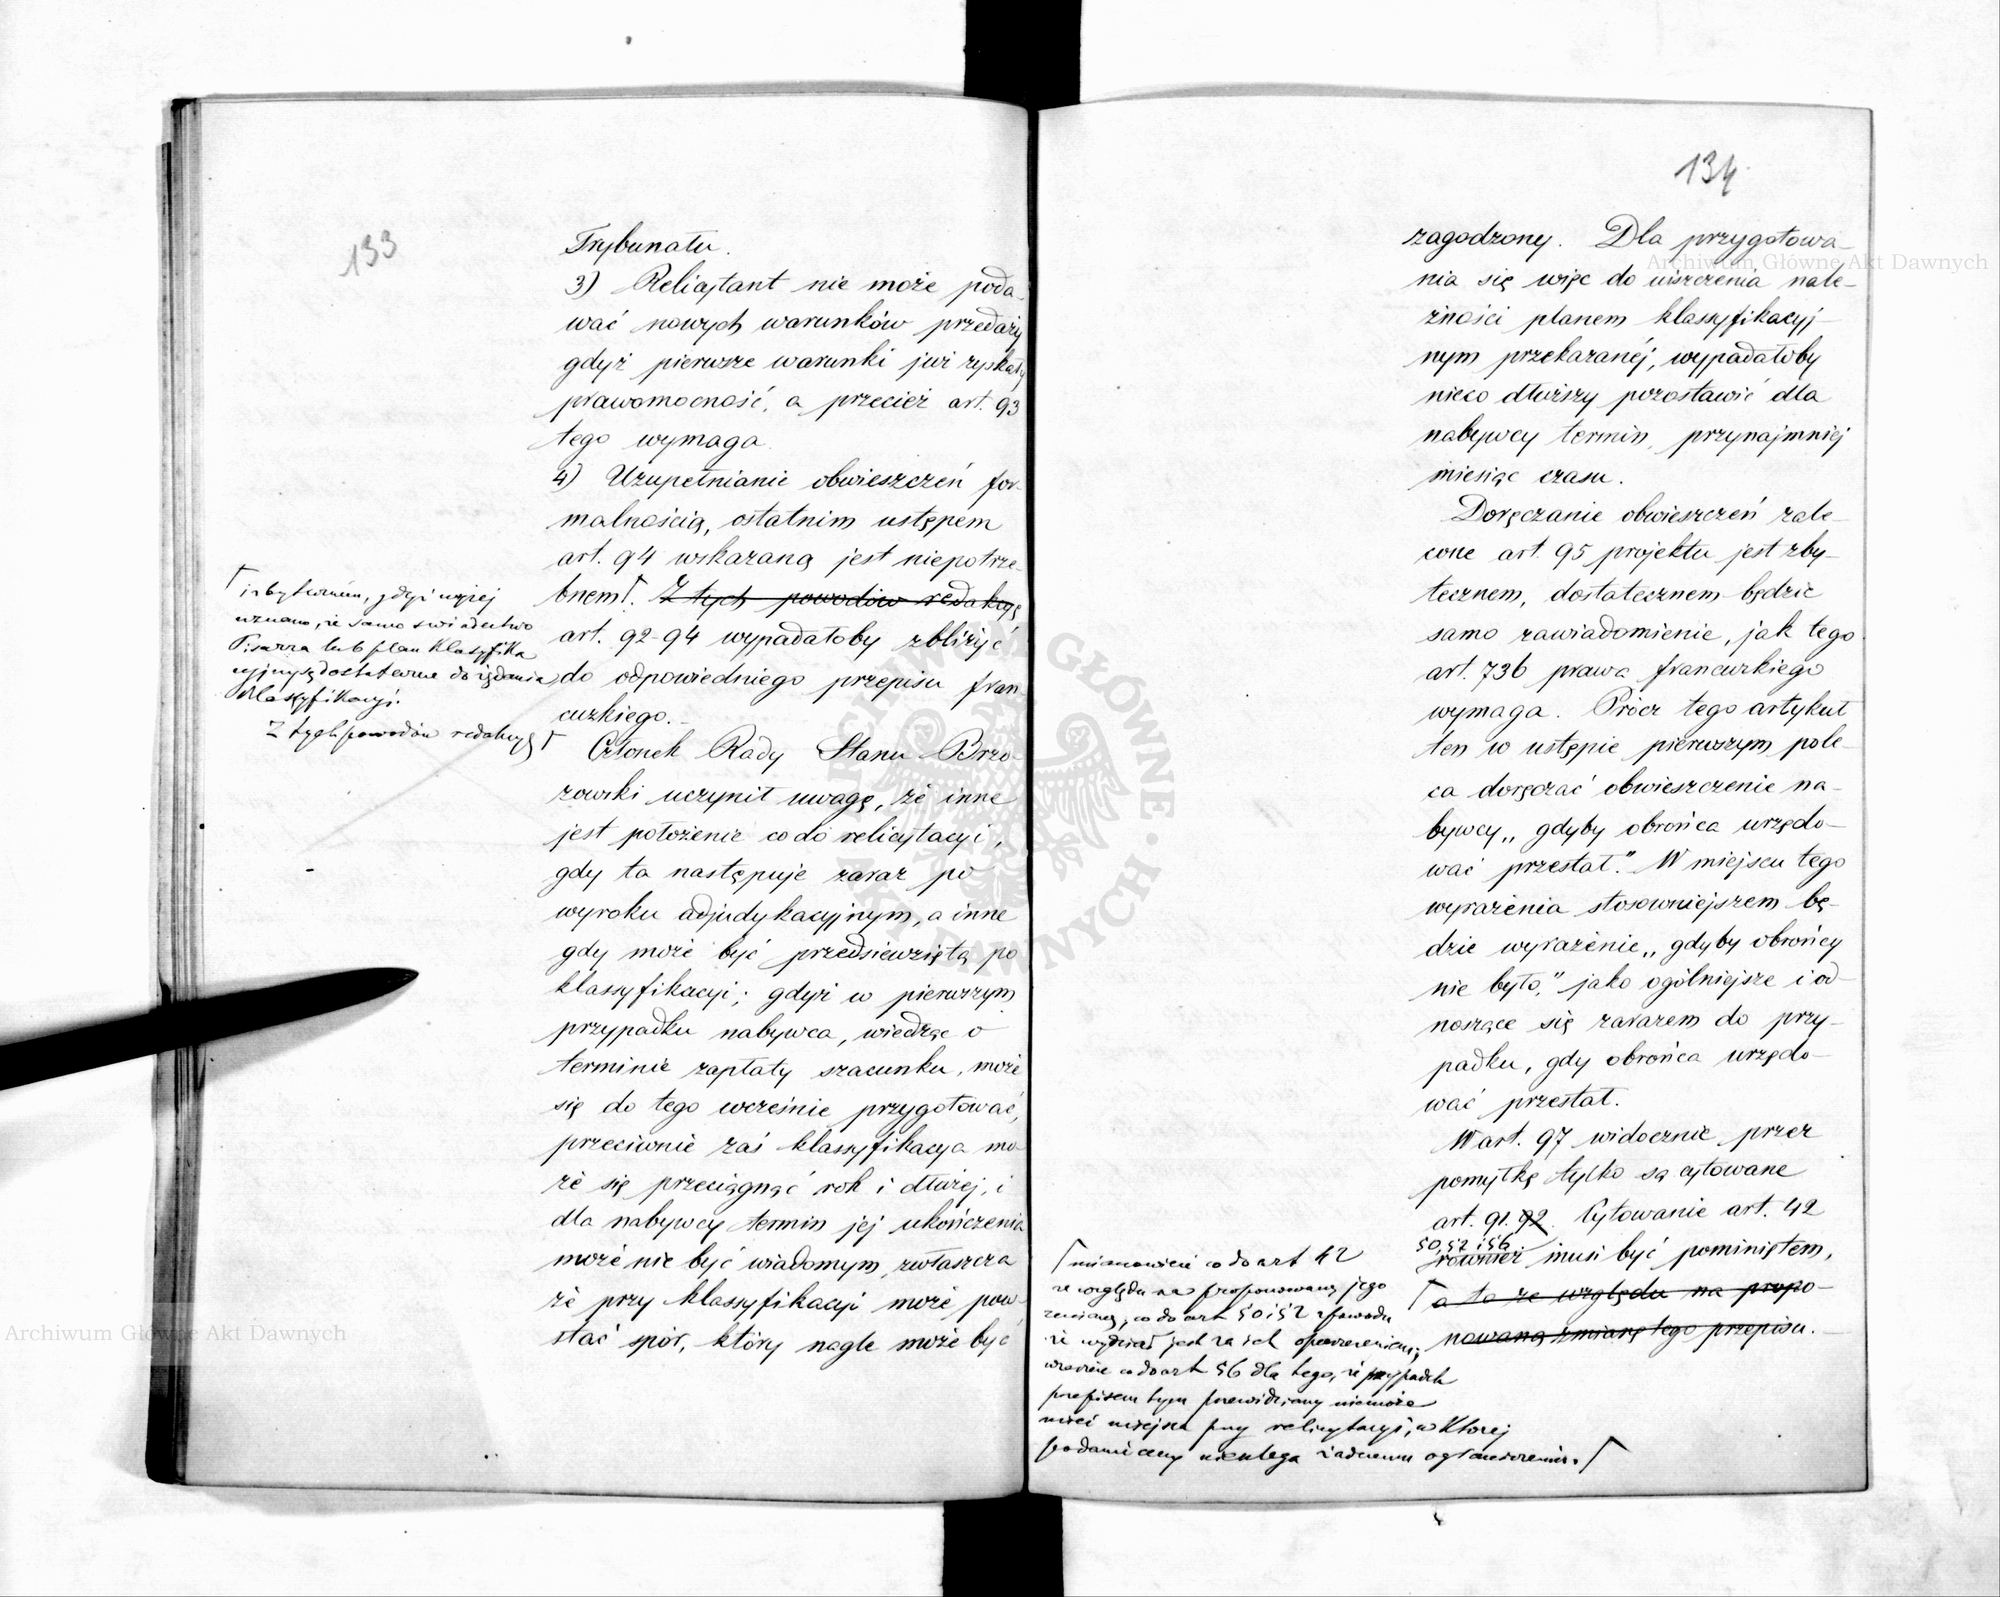 133
Trybunału.
3) Relicytant nie może poda-
wać nowych warunków przedaży
gdyż pierwsze warunki już zyskały
prawomocność, a przecież art. 93
tego wymaga
4) Uzupełnianie obwieszczeń for-
malnością, ostatnim ustępem
art. 94 wskazaną jest niepotrze-
bnem. Z tych powodów redakcyę
art. 92-94 wypadałoby zbliżyć
do odpowiedniego przepisu fran-
cuzkiego.
Członek Rady Stanu Brzo-
zowski uczynił uwagę, że inne
jest położenie co do relicytacyi,
gdy ta następuje zaraz po
wyroku adjudykacyjnym, a inne
gdy może być przedsięwziętą po
klassyfikacyi; gdyż w pierwszym
przypadku nabywca, wiedząc o
terminie zapłaty szacunku, może
się do tego wcześnie przygotować,
przeciwnie zaś klassyfikacya mo-
że się przeciągnąć rok i dłużej, i
dla nabywcy termin jej ukończenia
może nie być wiadomym, zwłaszcza
że przy klassyfikacyi może pow-
stać spór, który nagle może być
i zbytecznem, gdyż wyżej
uznano, że samo świadectwo
Pisarza lub plan klasyfika
cyjny są dostateczne do żądania
klassyfikacyi.
Z tych powodów redakcyę
134
zagodzony. Dla przygotowa-
nia się więc do uiszczenia nale-
żności planem klassyfikacyj-
nym przekazanéj, wypadałoby
nieco dłuższy pozostawić dla
nabywcy termin, przynajmniej
miesiąc czasu.
Doręczanie obwieszczeń zale-
cone art. 95 projektu jest zby-
tecznem, dostatecznem będzie
samo zawiadomienie, jak tego
art. 736 prawa francuzkiego
wymaga. Prócz tego artykuł
ten w ustępie pierwszym pole-
ca doręczać obwieszczenie na-
bywcy „gdyby obrońca urzędo-
wać przestał." W miejscu tego
wyrażenia stosowniejszem bę-
dzie wyrażenie „gdyby obrońcy
nie było," jako ogólniejsze i od-
noszące się zarazem do przy-
padku, gdy obrońca urzędo-
wać przestał.
W art. 97 widocznie przez
pomyłkę tylko są cytowane
art. 91. 92. Cytowanie art. 42
50, 52 i 56
również musi być pominiętem,
a to ze względu na propo-
nowaną zmianę tego przepisu.
mianowicie co do art 42
ze względu na proponowaną jego
zmianę, co do art 50 i 52 z powodu
że wydział jest za ich opuszczeniem,
wreszcie co do art 56 dla tego, że przypadek
przepisem tym przewidziany nie może
mieć miejsca przy relicytacyi, w której
podanie ceny nie ulega żadnemu ograniczeniu.
Archiwum Główne Akt Dawnych
Archiwum Główne Akt Dawnych
ARCHIWUM GŁÓWNE AKT DAWNYCH